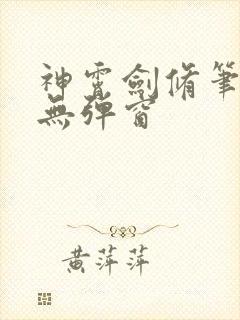 神霄劍脩筆
無彈窗
黃萍萍